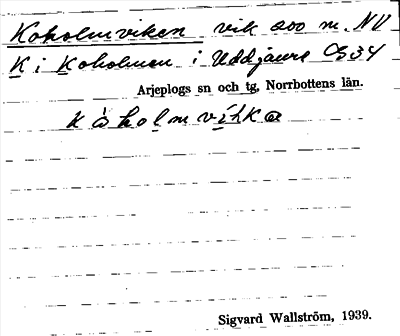 Koholmviken vik 200 m. NV
K i Koholmen i Uddjaure Cg 34
Arjeplogs sn och tg, Norrbottens län.
Sigvard Wallström, 1939.